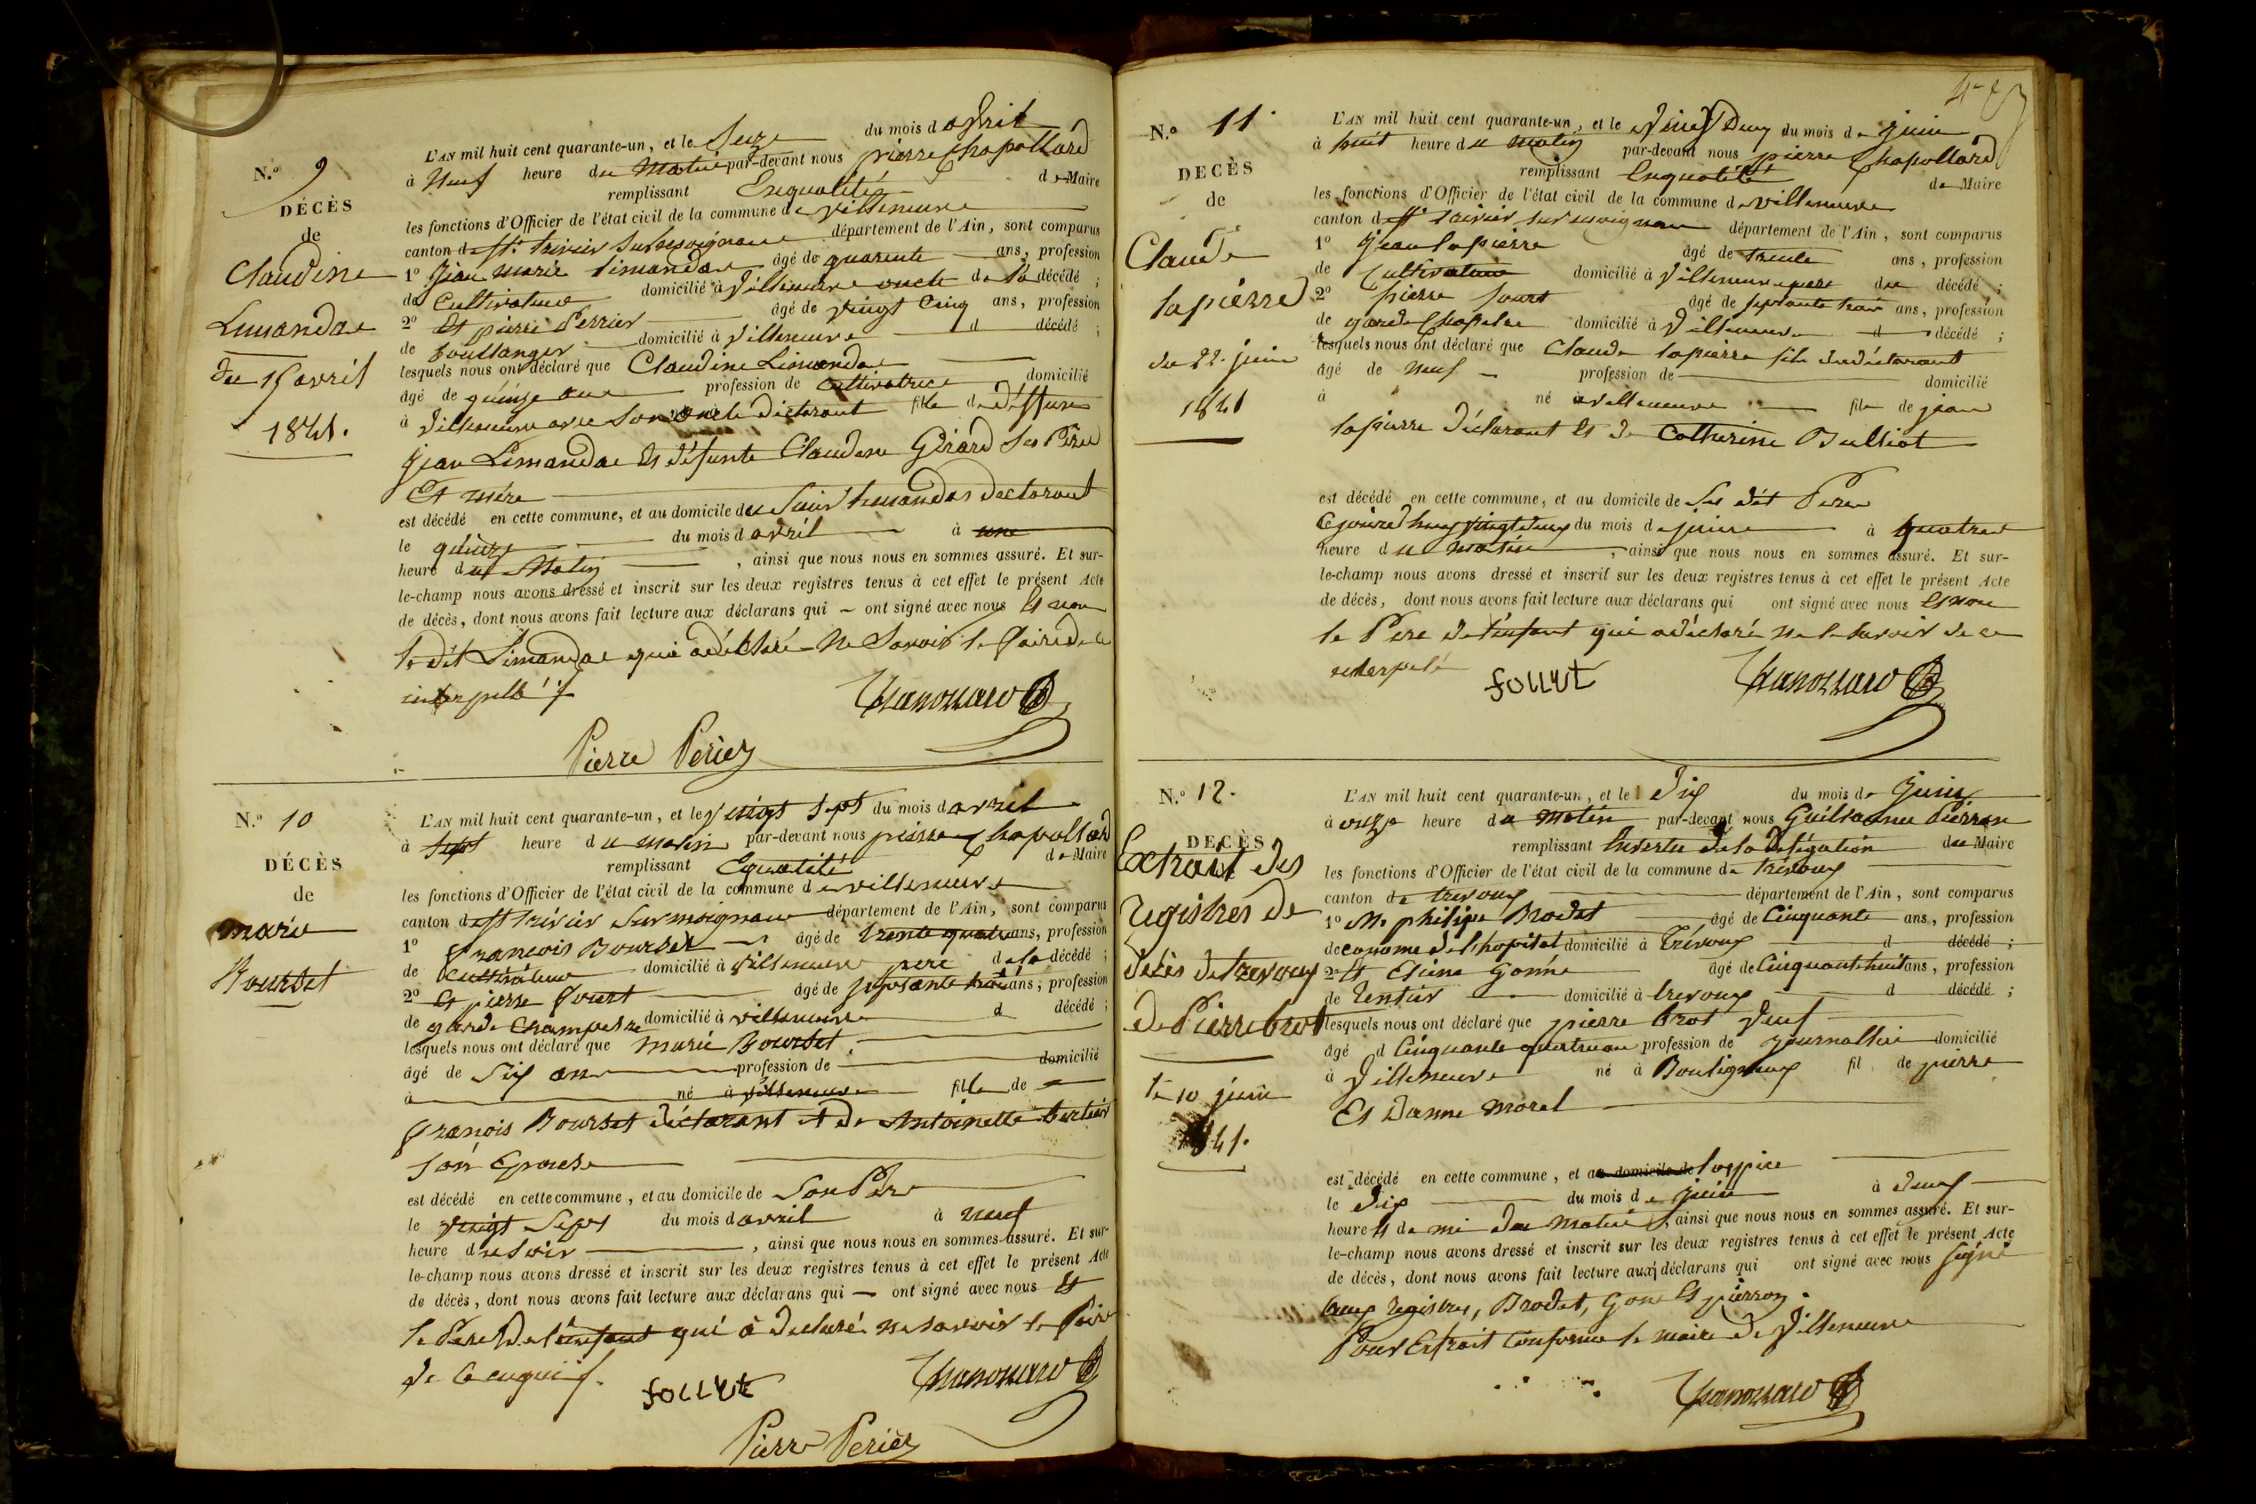 N.º 9
DÉCÈS
de
Claudine
Limandas
du 15 avril
1841.
L'AN mil huit cent quarante-un, et le Seize du mois d avril
à Neuf heure du Matin par-devant nous pierre Chapollard
remplissant Enqualité de Maire
les fonctions d'Officier de l'état civil de la commune de villeneuve
canton de St. trivier Surmoignans département de l'Ain, sont comparus
1º Jean marie Limandas âgé de quarente ans, profession
de Cultivateur domicilié à Villeneuve oncle de la décédé ;
2º Et pierre Perrier âgé de vingt Cinq ans, profession
de boullanger domicilié à Villeneuve d décédé ;
lesquels nous ont déclaré que Claudine Limandas
âgé de quinze ans profession de Cultivatrice domicilié
à Villeneuve avec Son oncle déclarant fille de déffunt
Jean Limandas Et défunte Claudine Girard Ses Père
Et mére
est décédé en cette commune, et au domicile du Sieur Limandas declarant
le quinze du mois d avril à une
heure du Matin , ainsi que nous nous en sommes assuré. Et sur-
le-champ nous avons dressé et inscrit sur les deux registres tenus à cet effet le présent Acte
de décès, dont nous avons fait lecture aux déclarans qui – ont signé avec nous Et non
le dit Limandas qui a déclaré Ne Savoir le faire de ce
interpellé
Pierre Perier
N.º 10
DÉCÈS
de
marie
Bourdet
L'AN mil huit cent quarante-un, et le Vingt Sept du mois d avril
à Sept heure du matin par-devant nous pierre Chapollard
remplissant Equalité de Maire
les fonctions d'Officier de l'état civil de la commune de villeneuve
canton de St trivier Surmoignans département de l'Ain, sont comparus
1º françois Bourdet âgé de trente quatre ans, profession
de Cultivateur domicilié à Villeneuve pere de la décédé ;
2º Et pierre Jourt âgé de Sepxante trois ans, profession
de garde Champetre domicilié à villeneuve d décédé ;
lesquels nous ont déclaré que marie Bourdet
âgé de Six ans profession de domicilié
à né à villeneuve fille de
françois Bourdet déclarant et de Antoinette
Son Epouse
est décédé en cette commune, et au domicile de Son Père
le vingt Sept du mois d avril à neuf
heure du Soir , ainsi que nous nous en sommes assuré. Et sur-
le-champ nous avons dressé et inscrit sur les deux registres tenus à cet effet le présent Acte
de décès, dont nous avons fait lecture aux déclarans qui – ont signé avec nous Et
le Pere De l'enfant qui a declaré ne savoir le faire
de ce enquis
Pierre Perier
N.º 11.
DECÈS
de
Claude
lapierre
du 22. juin
1841
L'AN mil huit cent quarante-un, et le Vingt Deux du mois de Juin
à huit heure du matin par-devant nous pierre Chapollard
remplissant Enqualité de Maire
les fonctions d'Officier de l'état civil de la commune de villeneuve
canton de St. trivier sur moignans département de l'Ain, sont comparus
1º Jean lapierre âgé de trente ans, profession
de Cultivateur domicilié à Villeneuve pere du décédé ;
2º pierre Jourt âgé de sepxante trois ans, profession
de garde Chapetre domicilié à Villeneuve d décédé ;
lesquels nous ont déclaré que Claude lapierre fils du déclarant
âgé de neuf profession de domicilié
à né à villeneuve fils de jean
lapierre déclarant Et de Catherine Bulliot
est décédé en cette commune, et au domicile de Son dit Pere
Ejourdhuy vingt deux du mois de juin à quatre
heure du matin , ainsi que nous nous en sommes assuré. Et sur-
le-champ nous avons dressé et inscrit sur les deux registres tenus à cet effet le présent Acte
de décès, dont nous avons fait lecture aux déclarans qui ont signé avec nous Et non
le Pere de l'enfant qui a déclaré ne le savoir de ce
interpelé
N.º 12.
DECÈS
Extrait des
registres de
décès de trevoux
de Pierre brot
le 10 juin
1841.
L'AN mil huit cent quarante-un, et le Dix du mois de Juin
à onze heure du matin par-devant nous Guillaume Pierron
remplissant En vertu de la Délégation du Maire
les fonctions d'Officier de l'état civil de la commune de trévoux
canton de trevoux département de l'Ain, sont comparus
1º M. philipe Brodet âgé de Cinquante ans, profession
de econome de l'hopital domicilié à Trévoux d décédé ;
2º Et Etiene Gonne âgé de Cinquante huit ans, profession
de Rentier domicilié à trevoux d décédé ;
lesquels nous ont déclaré que pierre brot Veuf
âgé d Cinquante quatre an profession de Journallier domicilié
à Villeneuve né à Bouligneux fil de pierre
Et Danne Morel
est décédé en cette commune, et au domicile de l'ospice
le Dix du mois de juin à deux
heure Et demi du Matin , ainsi que nous nous en sommes assuré. Et sur-
le-champ nous avons dressé et inscrit sur les deux registres tenus à cet effet le présent Acte
de décès, dont nous avons fait lecture aux déclarans qui ont signé avec nous Signé
aux registres, Brodet, Gone Et pierron.
Pour Extrait Conforme le maire de Villeneuve